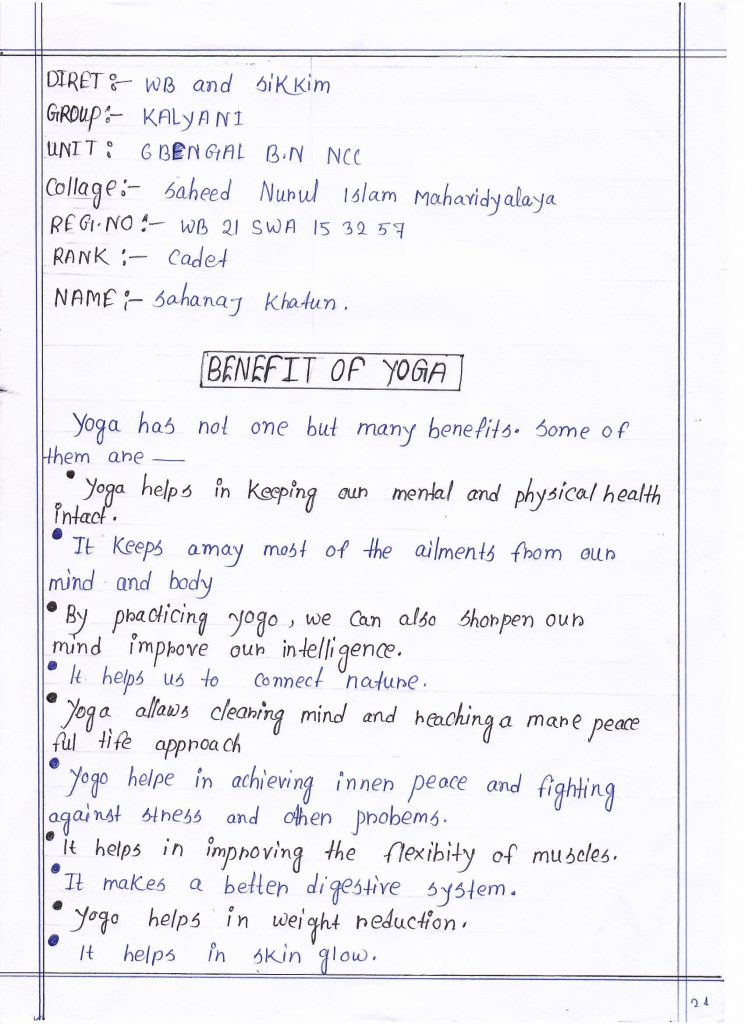 DIRET :- WB and SiKKim
GROUP:- KALYANI
UNIT : 6 BENGAL B.N NCC
Collage:- Saheed Nurul Islam Mahavidyalaya
REGI.NO :- WB 21 SWA 15 32 57
RANK :- Cadet
NAME :- Sahanaj Khatun.
BENEFIT OF YOGA
Yoga has not one but many benefits. Some of
them are —
• Yoga helps in Keeping our mental and physical health
intact.
• It Keeps amay most of the ailments from our
mind and body
• By practicing yogo, we can also shorpen our
mind improve our intelligence.
• It helps us to connect nature.
• Yoga allaws clearing mind and reaching a mare peace
ful life approach
• Yogo helpe in achieving inner peace and fighting
against stress and other probems.
• It helps in improving the flexibity of muscles.
• It makes a better digestive system.
• Yogo helps in weight reduction.
• It helps in skin glow.
21